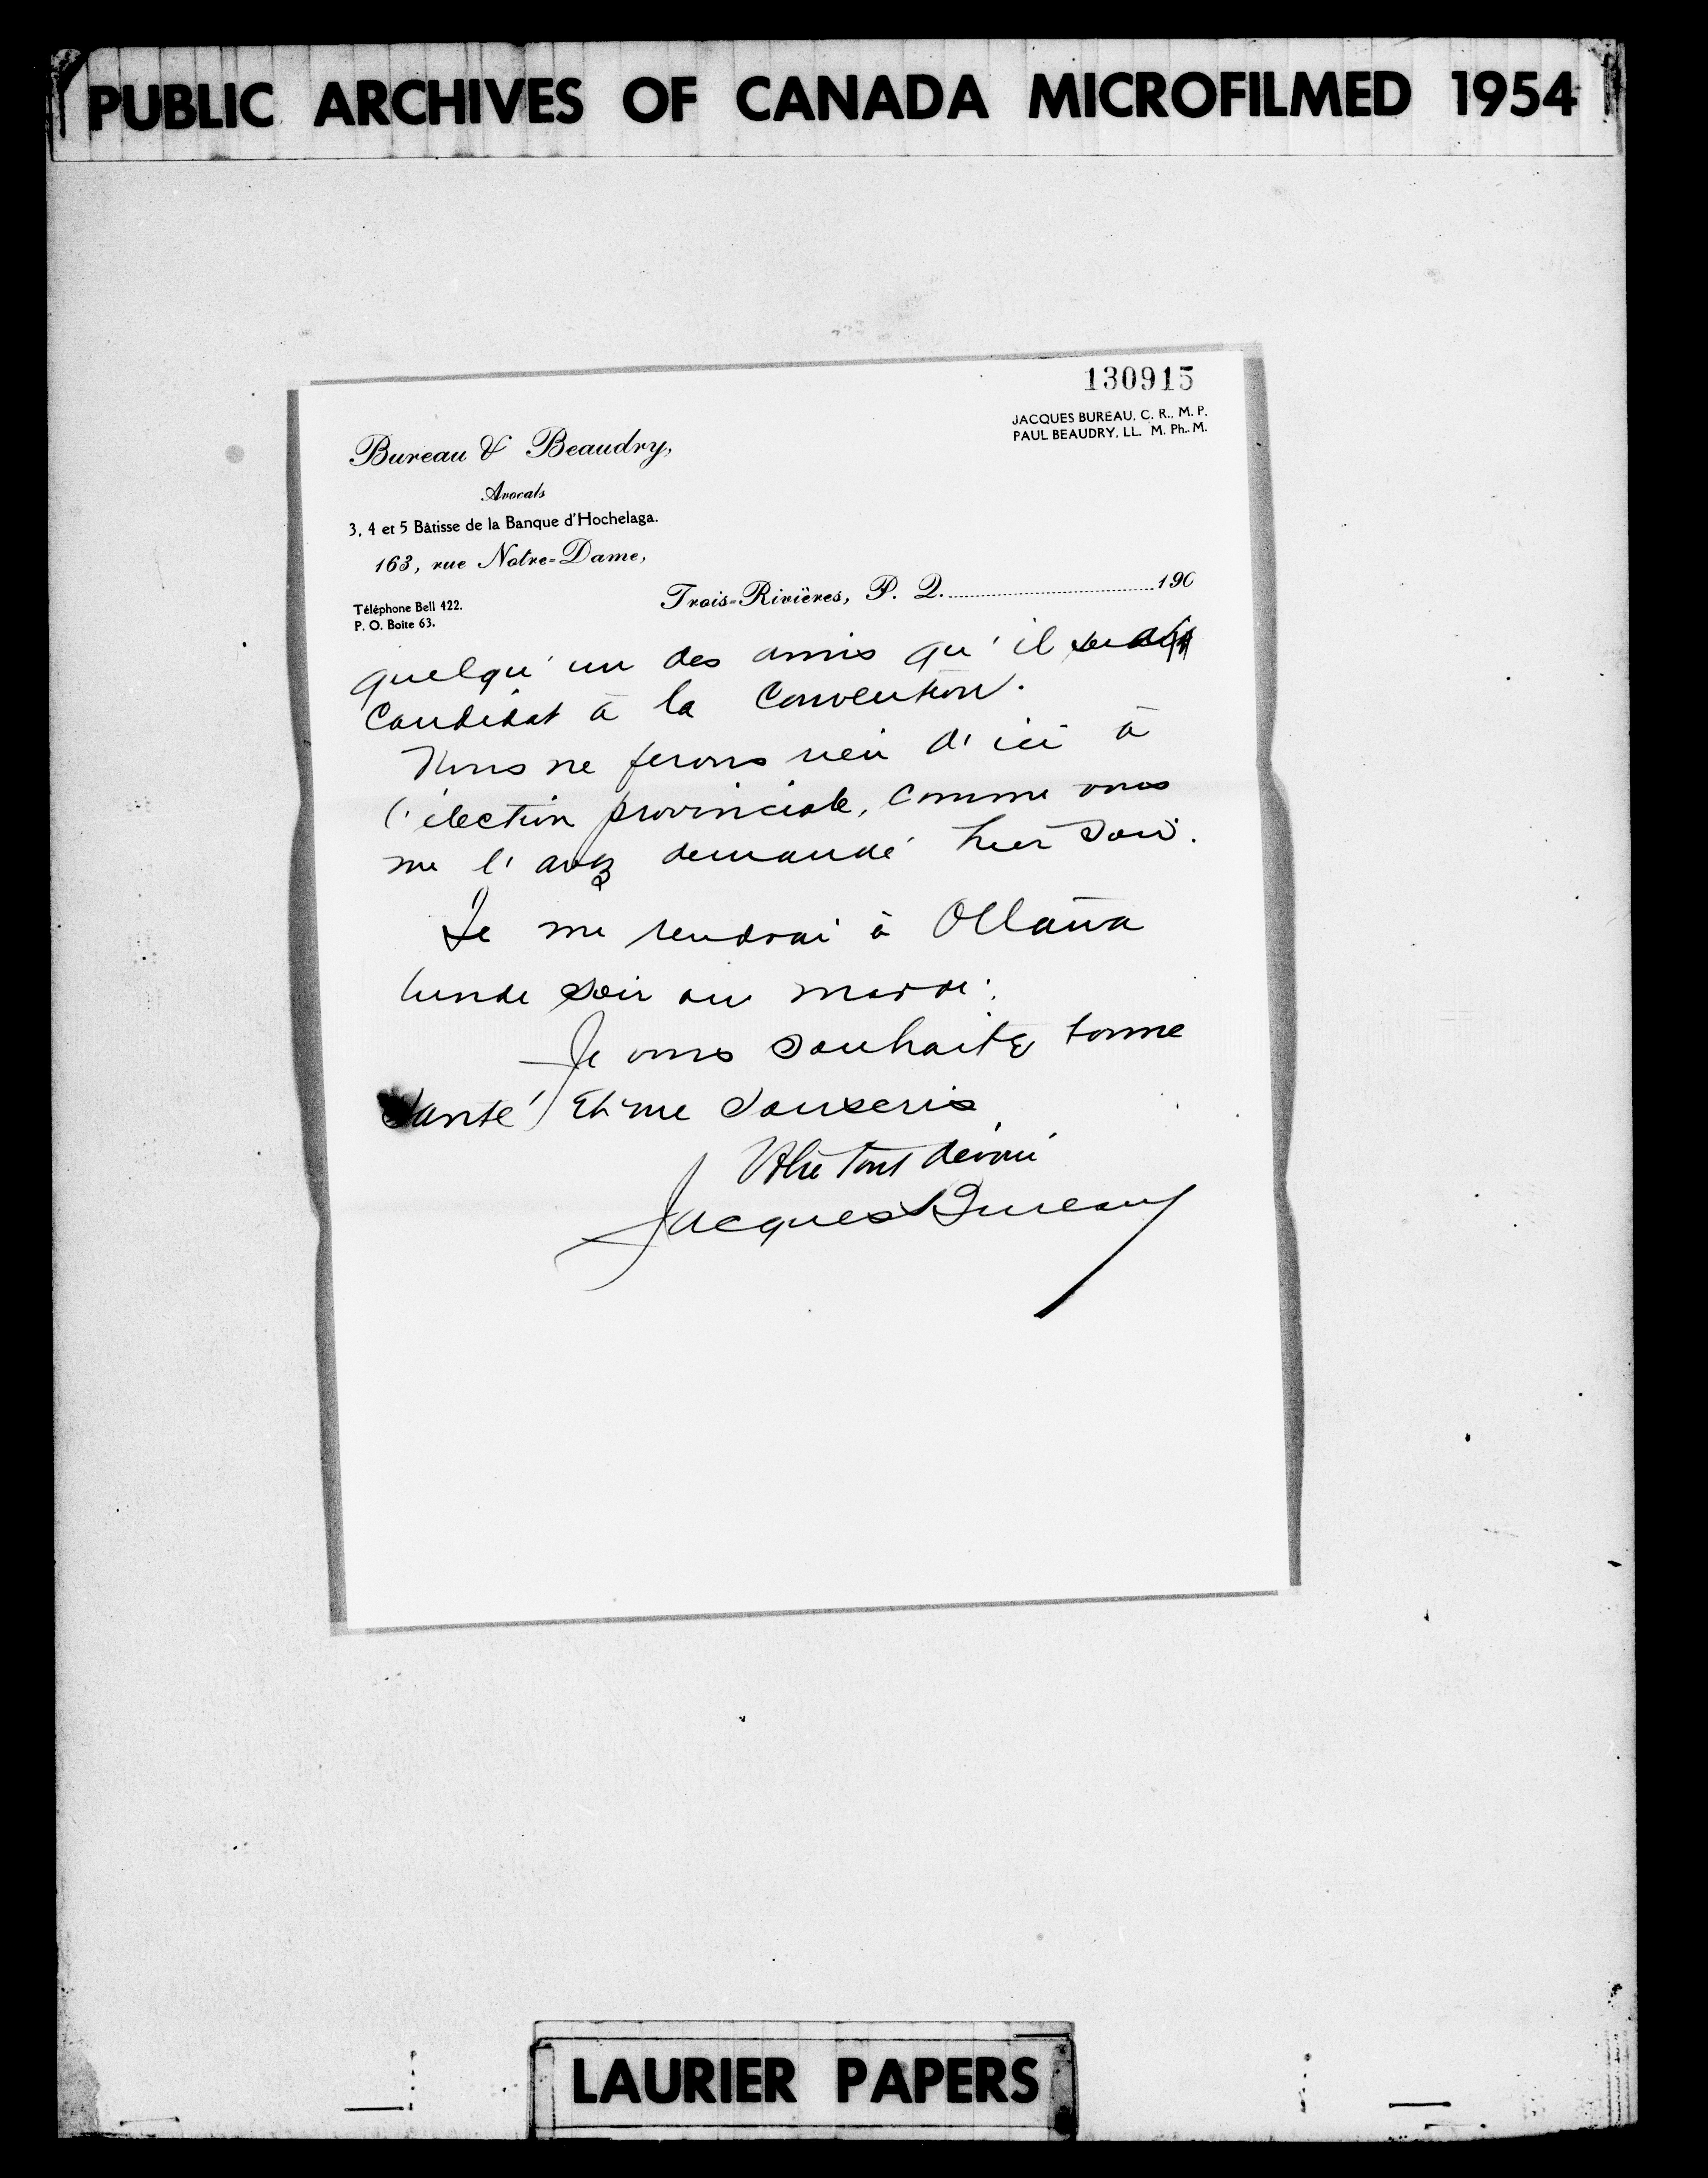 PUBLIC ARCHIVES OF CANADA MICROFILMED 1954
130915
JACQUES BUREAU, C. R., M. P.
PAUL BEAUDRY, LL. M. Ph. M.
Bureau & Beaudry,
Avocats
3, 4 et 5 Bâtisse de la Banque d'Hochelaga.
163, rue Notre-Dame,
Téléphone Bell 422.
P. O. Boite 63.
Trois-Rivières, P. Q. 190
quelqu'un des amis qu'il serait
candidat à la Convention.
Nous ne ferons rien d'ici à
l'élection provinciale, comme vous
me l'avez demandé hier soir.
Je me rendrai à Ottawa
lundi soir ou mardi.
Je vous souhaite bonne
santé et me souscris
Votre tout dévoué
Jacques Bureau
LAURIER PAPERS